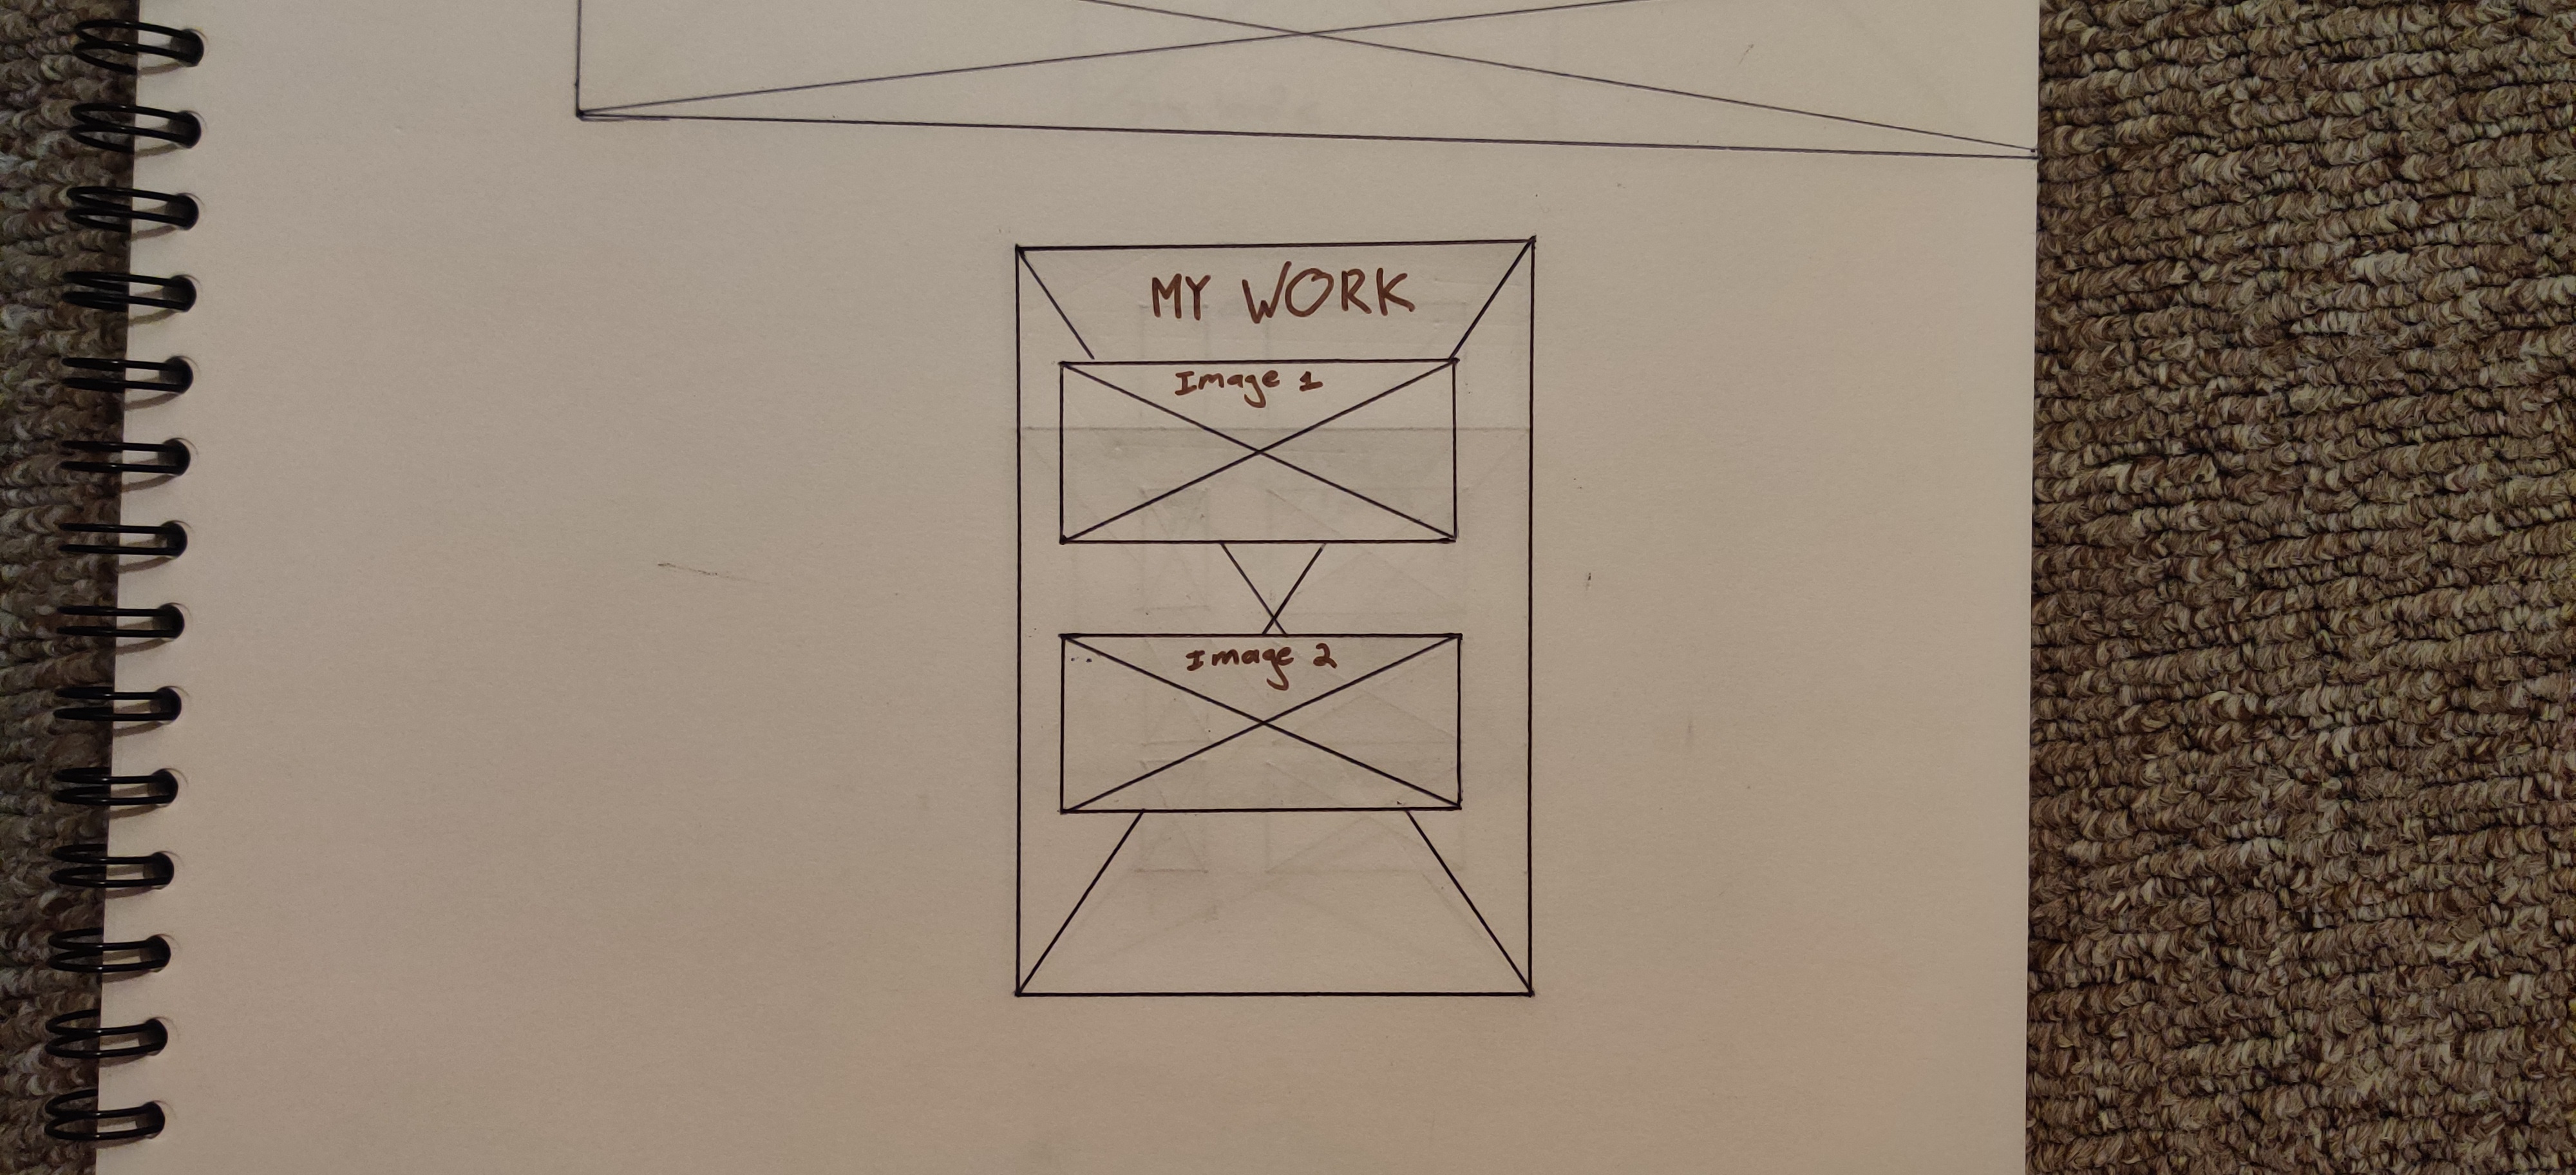 MY WORK
Image 1
Image 2